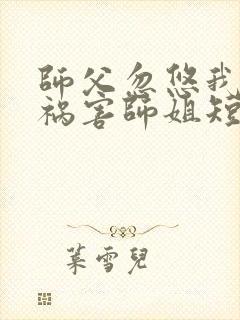 師父忽悠我
禍害師姐短
葉雪兒